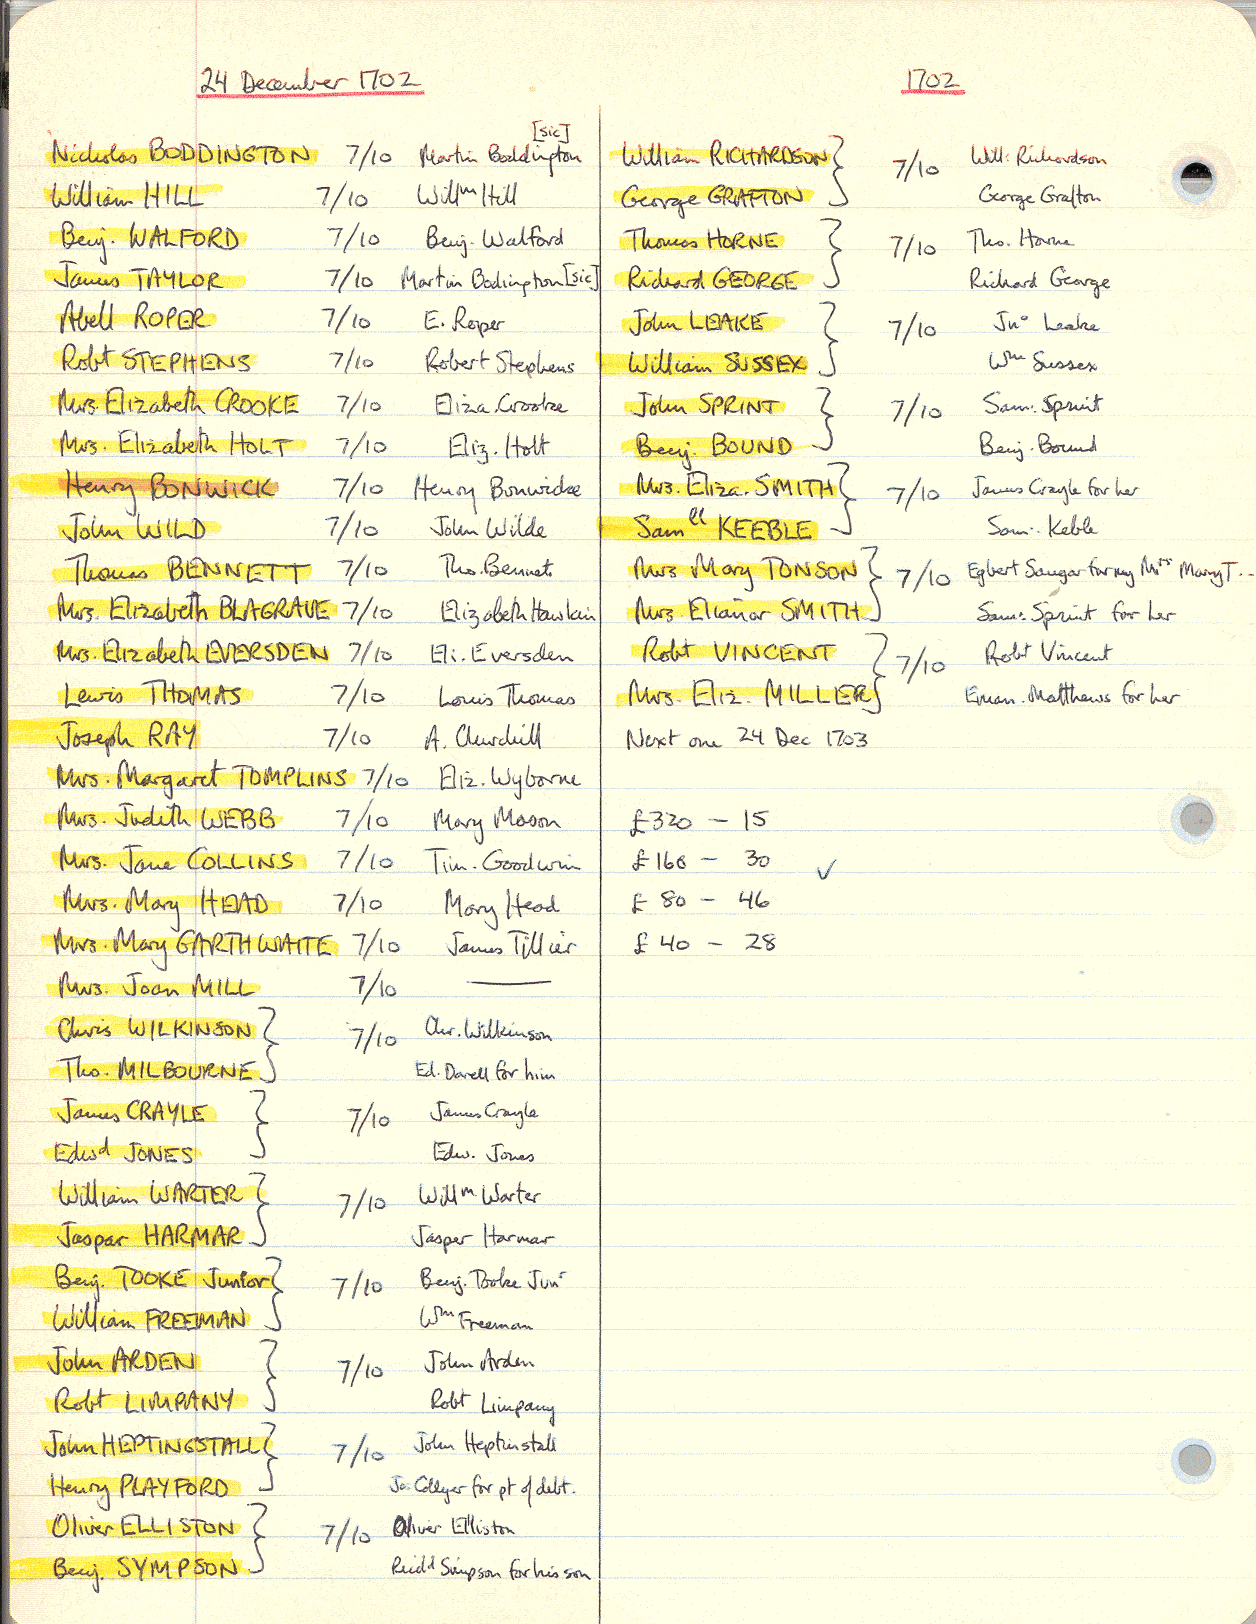 24 December 1702
[sic]
Nicholas BODDINGTON 7/10 Martin Boddington
William HILL 7/10 Willm Hill
Benj. WALFORD 7/10 Benj. Walford
James TAYLOR 7/10 Martin Bodington [sic]
Abell ROPER 7/10 E. Roper
Robt STEPHENS 7/10 Robert Stephens
Mrs. Elizabeth CROOKE 7/10 Eliza. Crooke
Mrs. Elizabeth HOLT 7/10 Eliz. Holt
Henry BONWICK 7/10 Henry Bonwicke
John WILD 7/10 John Wilde
Thomas BENNETT 7/10 Tho. Bennet
Mrs. Elizabeth BLAGRAVE 7/10 Elizabeth Hawkin
Mrs. Elizabeth EVERSDEN 7/10 Eli. Eversden
Lewis THOMAS 7/10 Louis Thomas
Joseph RAY 7/10 A. Churchill
Mrs. Margaret TOMPLINS 7/10 Eliz. Wyborne
Mrs. Judith WEBB 7/10 Mary Mason
Mrs. Jane COLLINS 7/10 Tim. Goodwin
Mrs. Mary HEAD 7/10 Mary Head
Mrs. Mary GARTHWAITE 7/10 James Tillier
Mrs. Joan MILL 7/10 ——
Chris WILKINSON } 7/10 Chr. Wilkinson
Tho. MILBOURNE } Ed. Darell for him
James CRAYLE } 7/10 James Crayle
Edwd JONES } Edw. Jones
William WARTER } 7/10 Willm. Warter
Jaspar HARMAR } Jasper Harmar
Benj. TOOKE Junior } 7/10 Benj. Tooke Junr
William FREEMAN } Wm Freeman
John ARDEN } 7/10 John Arden
Robt LIMPANY } Robt Limpany
John HEPTINGSTALL } 7/10 John Heptinstall
Henry PLAYFORD } Jo: Collyer for pt of debt.
Oliver ELLISTON } 7/10 Oliver Elliston
Benj. SYMPSON } Richd Simpson for his son
1702
William RICHARDSON } 7/10 Will: Richardson
George GRAFTON } George Grafton
Thomas HORNE } 7/10 Tho. Horne
Richard GEORGE } Richard George
John LEAKE } 7/10 Jno Leake
William SUSSEX } Wm Sussex
John SPRINT } 7/10 Sam: Sprint
Benj. BOUND } Benj. Bound
Mrs. Eliza. SMITH } 7/10 James Crayle for her
Samll KEEBLE } Sam: Keble
Mrs Mary TONSON } 7/10 Egbert Sangar for my Mrs Mary T...
Mrs. Elianor SMITH } Sam: Sprint for her
Robt VINCENT } 7/10 Robt Vincent
Mrs. Eliz. MILLER } Eman. Matthews for her
Next one 24 Dec 1703
£320 – 15
£160 – 30 ✓
£ 80 – 46
£ 40 – 28